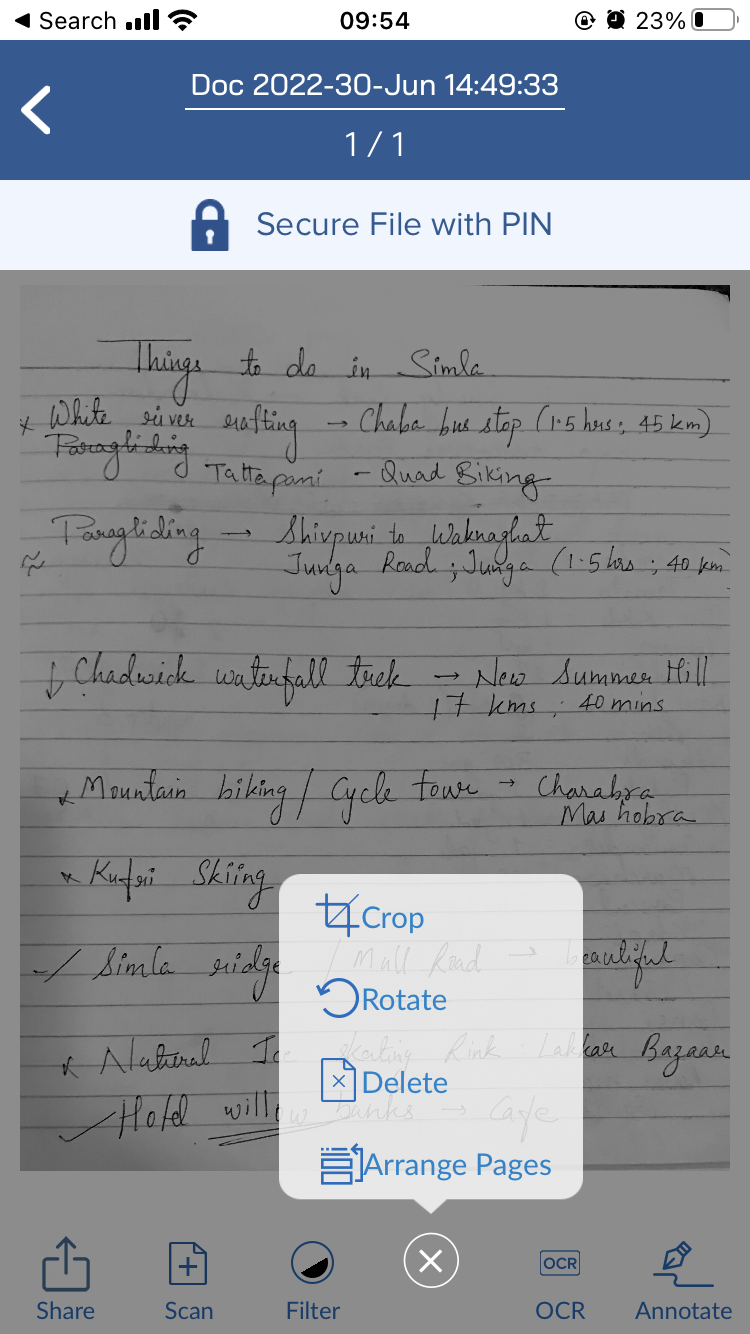 Search 09:54 23%
Doc 2022-30-Jun 14:49:33
1 / 1
Secure File with PIN
Things to do in Simla
x White river rafting → Chaba bus stop (1.5 hrs; 45 km)
Paragliding
Tattapani - Quad Biking
Paragliding → Shivpuri to Waknaghat
Junga Road ; Junga (1.5 hrs ; 40 km
Chadwick waterfall trek → New Summer Hill
17 kms ; 40 mins
x Mountain biking / Cycle tour → Charabra
Mashobra
x Kufri Skiing
Simla ridge / Mall Road → beautiful
x Natural Ice Skating Rink - Lakkar Bazaar
✓ Hotel willow banks → Cafe
Crop
Rotate
Delete
Arrange Pages
Share
Scan
Filter
OCR
OCR
Annotate